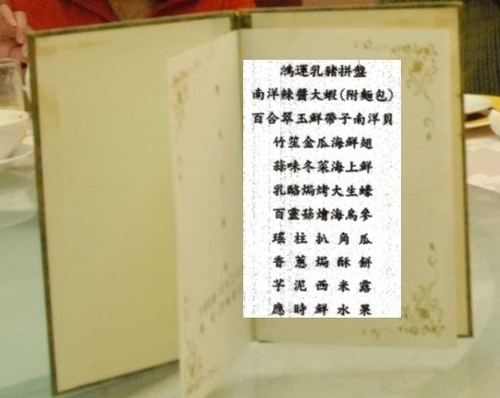 鴻運乳豬拼盤
南洋辣醬大蝦(附麵包)
百合翠玉鮮帶子南洋貝
竹笙金瓜海鮮翅
蒜味冬菜海上鮮
乳酪焗烤大生蠔
百靈菇燴海烏參
瑤柱扒角瓜
香蔥焗酥餅
芋泥西米露
應時鮮水果